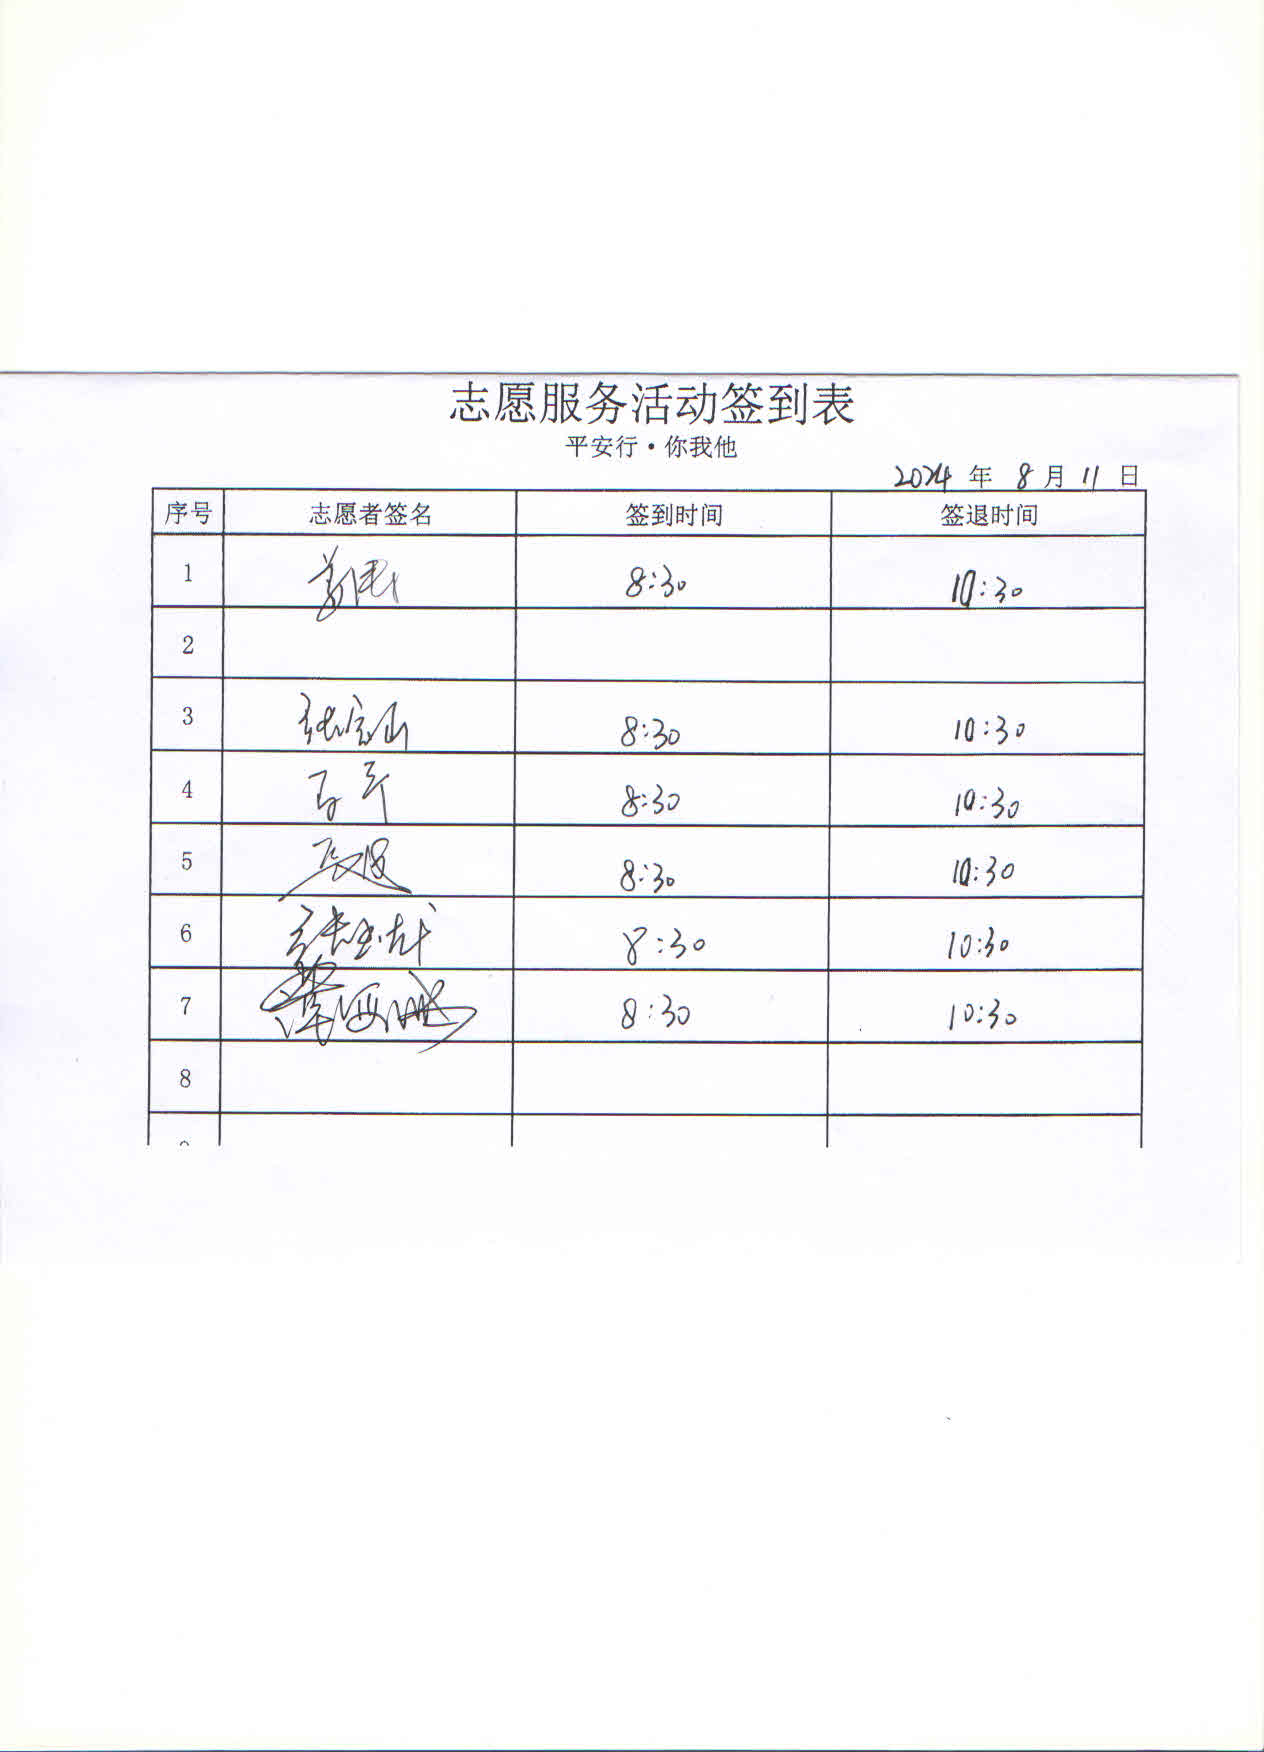 志愿服务活动签到表
平安行·你我他
2024 年 8 月 11 日
序号 志愿者签名 签到时间 签退时间
1 8:30 10:30
2
3 8:30 10:30
4 8:30 10:30
5 8:30 10:30
6 8:30 10:30
7 8:30 10:30
8